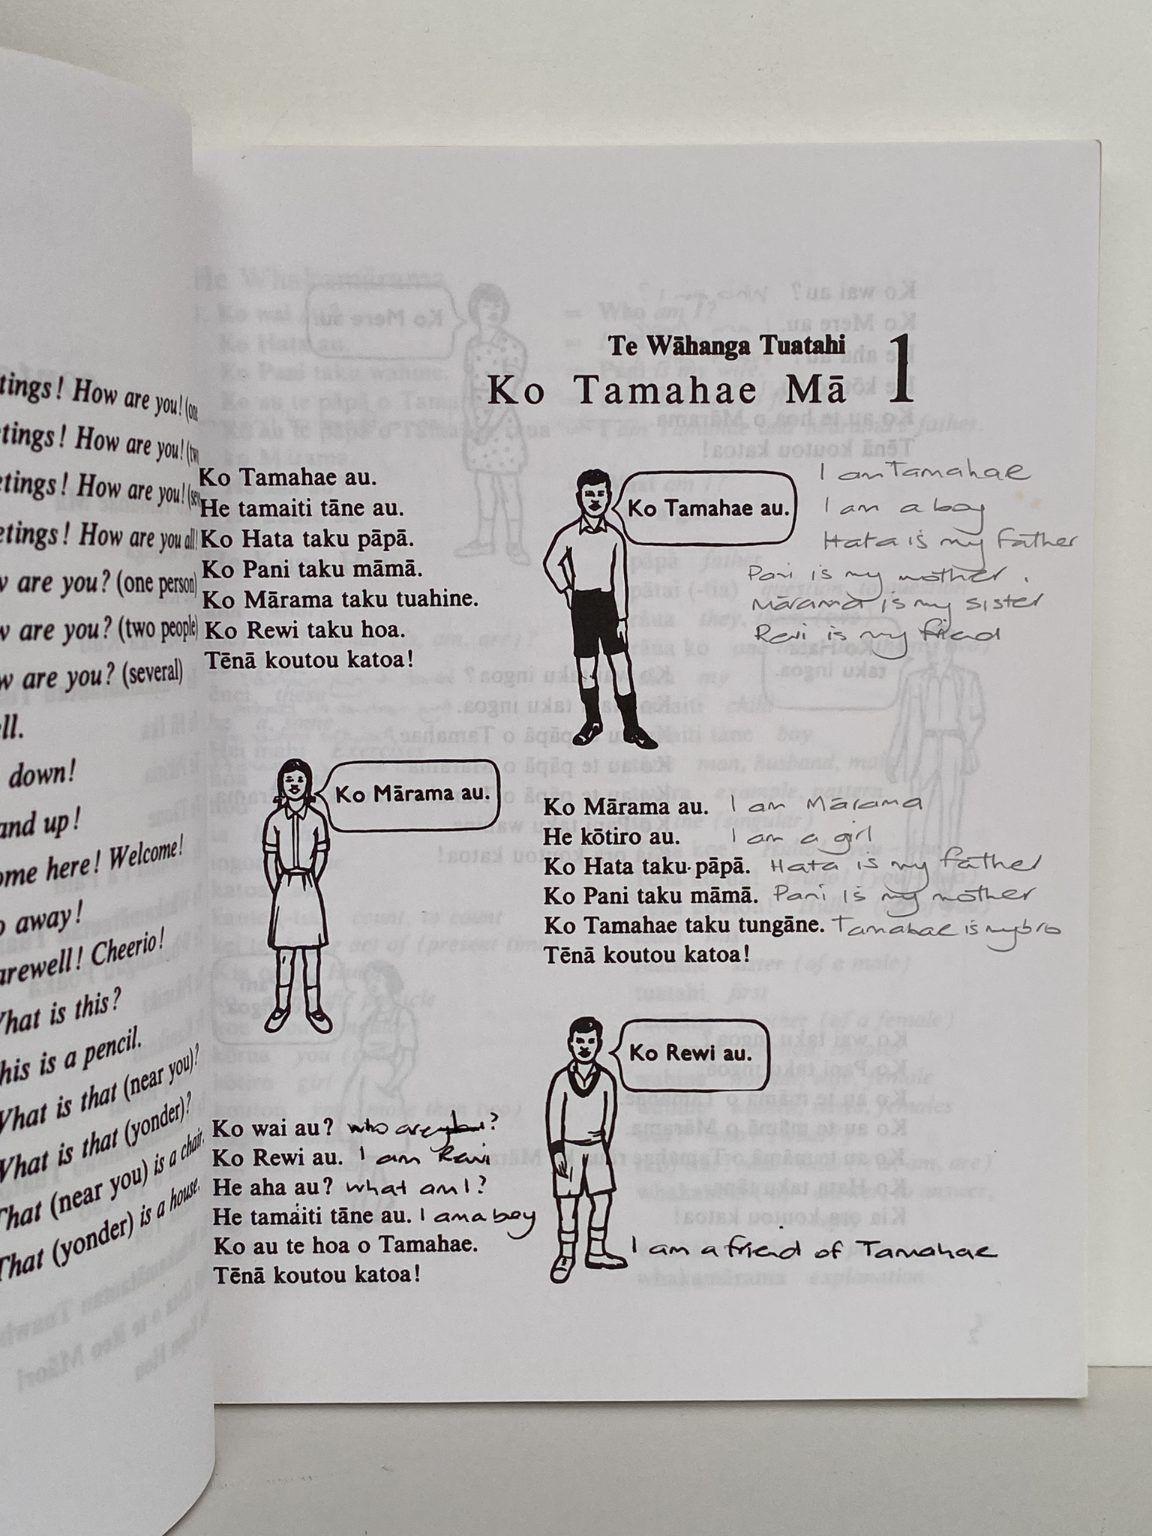 tings! How are you! (one
tings! How are you! (tw
etings! How are you! (sev
eetings! How are you all!
w are you? (one person)
w are you? (two people)
w are you? (several)
ll.
down!
and up!
ome here! Welcome!
o away!
arewell! Cheerio!
What is this?
This is a pencil.
What is that (near you)?
What is that (yonder)?
That (near you) is a chair.
That (yonder) is a house.
Te Wāhanga Tuatahi
Ko Tamahae Mā 1
Ko Tamahae au.
He tamaiti tāne au.
Ko Hata taku pāpā.
Ko Pani taku māmā.
Ko Mārama taku tuahine.
Ko Rewi taku hoa.
Tēnā koutou katoa!
Ko Tamahae au.
I am Tamahae
I am a boy
Hata is my father
Pani is my mother.
Mārama is my sister
Rewi is my friend
Ko Mārama au.
Ko Mārama au. I am Mārama
He kōtiro au. I am a girl
Ko Hata taku pāpā. Hata is my father
Ko Pani taku māmā. Pani is my mother
Ko Tamahae taku tungāne. Tamahae is my bro
Tēnā koutou katoa!
Ko Rewi au.
Ko wai au? who are ?
Ko Rewi au. I am Rewi
He aha au? what am I?
He tamaiti tāne au. I am a boy
Ko au te hoa o Tamahae. I am a friend of Tamahae
Tēnā koutou katoa!